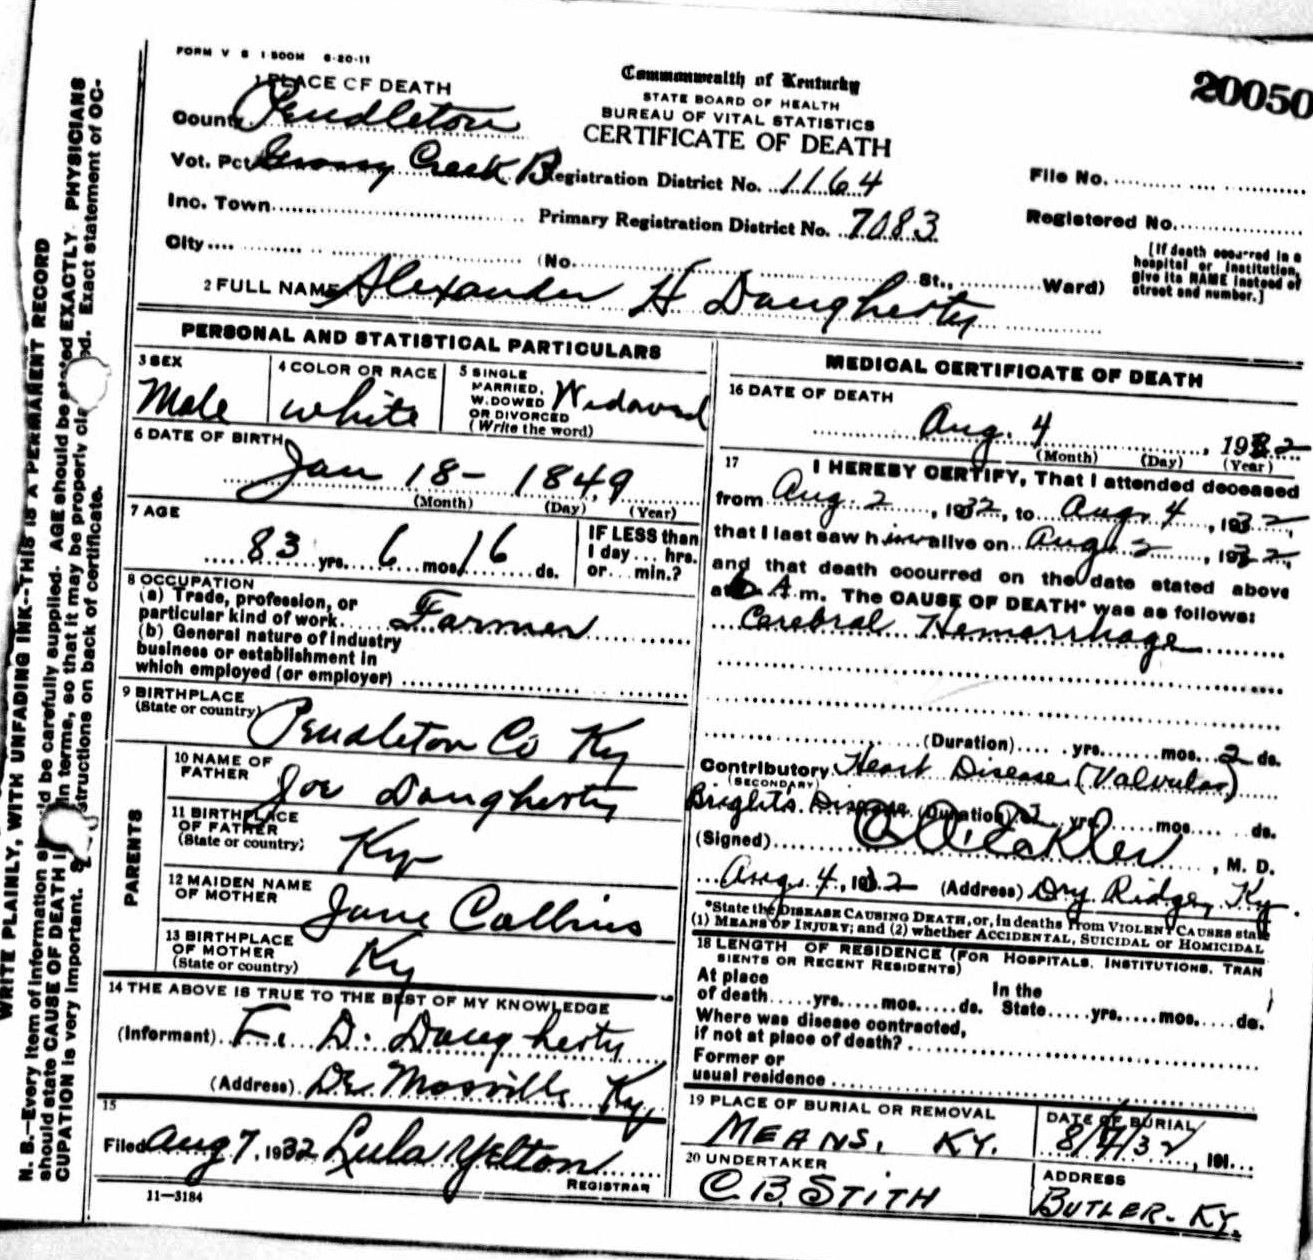 FORM V S 1 500M 6-20-11
Commonwealth of Kentucky
STATE BOARD OF HEALTH
BUREAU OF VITAL STATISTICS
CERTIFICATE OF DEATH
20050
1 PLACE OF DEATH
County Pendleton
Vot. Pct Grassy Creek B Registration District No. 1164
File No.
Inc. Town Primary Registration District No. 7083
Registered No.
City (No. St., Ward)
[If death occurred in a
hospital or institution,
give its NAME instead of
street and number.]
2 FULL NAME Alexander H Daugherty
PERSONAL AND STATISTICAL PARTICULARS
3 SEX
Male
4 COLOR OR RACE
white
5 SINGLE
MARRIED,
WIDOWED
OR DIVORCED
(Write the word)
Widowed
6 DATE OF BIRTH
Jan 18- 1849
(Month) (Day) (Year)
7 AGE
83 yrs. 6 mos. 16 ds.
IF LESS than
1 day ... hrs.
or ... min.?
8 OCCUPATION
(a) Trade, profession, or
particular kind of work Farmer
(b) General nature of industry
business or establishment in
which employed (or employer)
9 BIRTHPLACE
(State or country)
Pendleton Co Ky
PARENTS
10 NAME OF
FATHER
Joe Daugherty
11 BIRTHPLACE
OF FATHER
(State or country)
Ky
12 MAIDEN NAME
OF MOTHER
Jane Collins
13 BIRTHPLACE
OF MOTHER
(State or country)
Ky
14 THE ABOVE IS TRUE TO THE BEST OF MY KNOWLEDGE
(Informant) F. D. Daugherty
(Address) De Mossville Ky.
15
Filed Aug 7, 1932 Lula Yelton
REGISTRAR
11—3184
MEDICAL CERTIFICATE OF DEATH
16 DATE OF DEATH
Aug. 4, 1932
(Month) (Day) (Year)
17 I HEREBY CERTIFY, That I attended deceased
from Aug. 2, 1932, to Aug. 4, 1932,
that I last saw him alive on Aug 2, 1932,
and that death occurred on the date stated above
at 6 A.m. The CAUSE OF DEATH* was as follows:
Cerebral Hemorrhage
(Duration) yrs. mos. 2 ds.
Contributory Heart Disease (Valvular)
(SECONDARY)
Bright's Disease (Duration) yrs. mos. ds.
(Signed) , M. D.
Aug. 4, 1932 (Address) Dry Ridge, Ky.
*State the DISEASE CAUSING DEATH, or, in deaths from VIOLENT CAUSES state
(1) MEANS OF INJURY; and (2) whether ACCIDENTAL, SUICIDAL or HOMICIDAL
18 LENGTH OF RESIDENCE (FOR HOSPITALS, INSTITUTIONS, TRAN
SIENTS OR RECENT RESIDENTS)
At place
of death yrs. mos. ds.
In the
State yrs. mos. ds.
Where was disease contracted,
if not at place of death?
Former or
usual residence
19 PLACE OF BURIAL OR REMOVAL
MEANS, KY.
DATE OF BURIAL
8/7/32, 191
20 UNDERTAKER
C. B. STITH
ADDRESS
BUTLER- KY.
WRITE PLAINLY, WITH UNFADING INK--THIS IS A PERMANENT RECORD
N. B.—Every item of information should be carefully supplied. AGE should be stated EXACTLY. PHYSICIANS
should state CAUSE OF DEATH in terms, so that it may be properly classified. Exact statement of OC-
CUPATION is very important. See instructions on back of certificate.